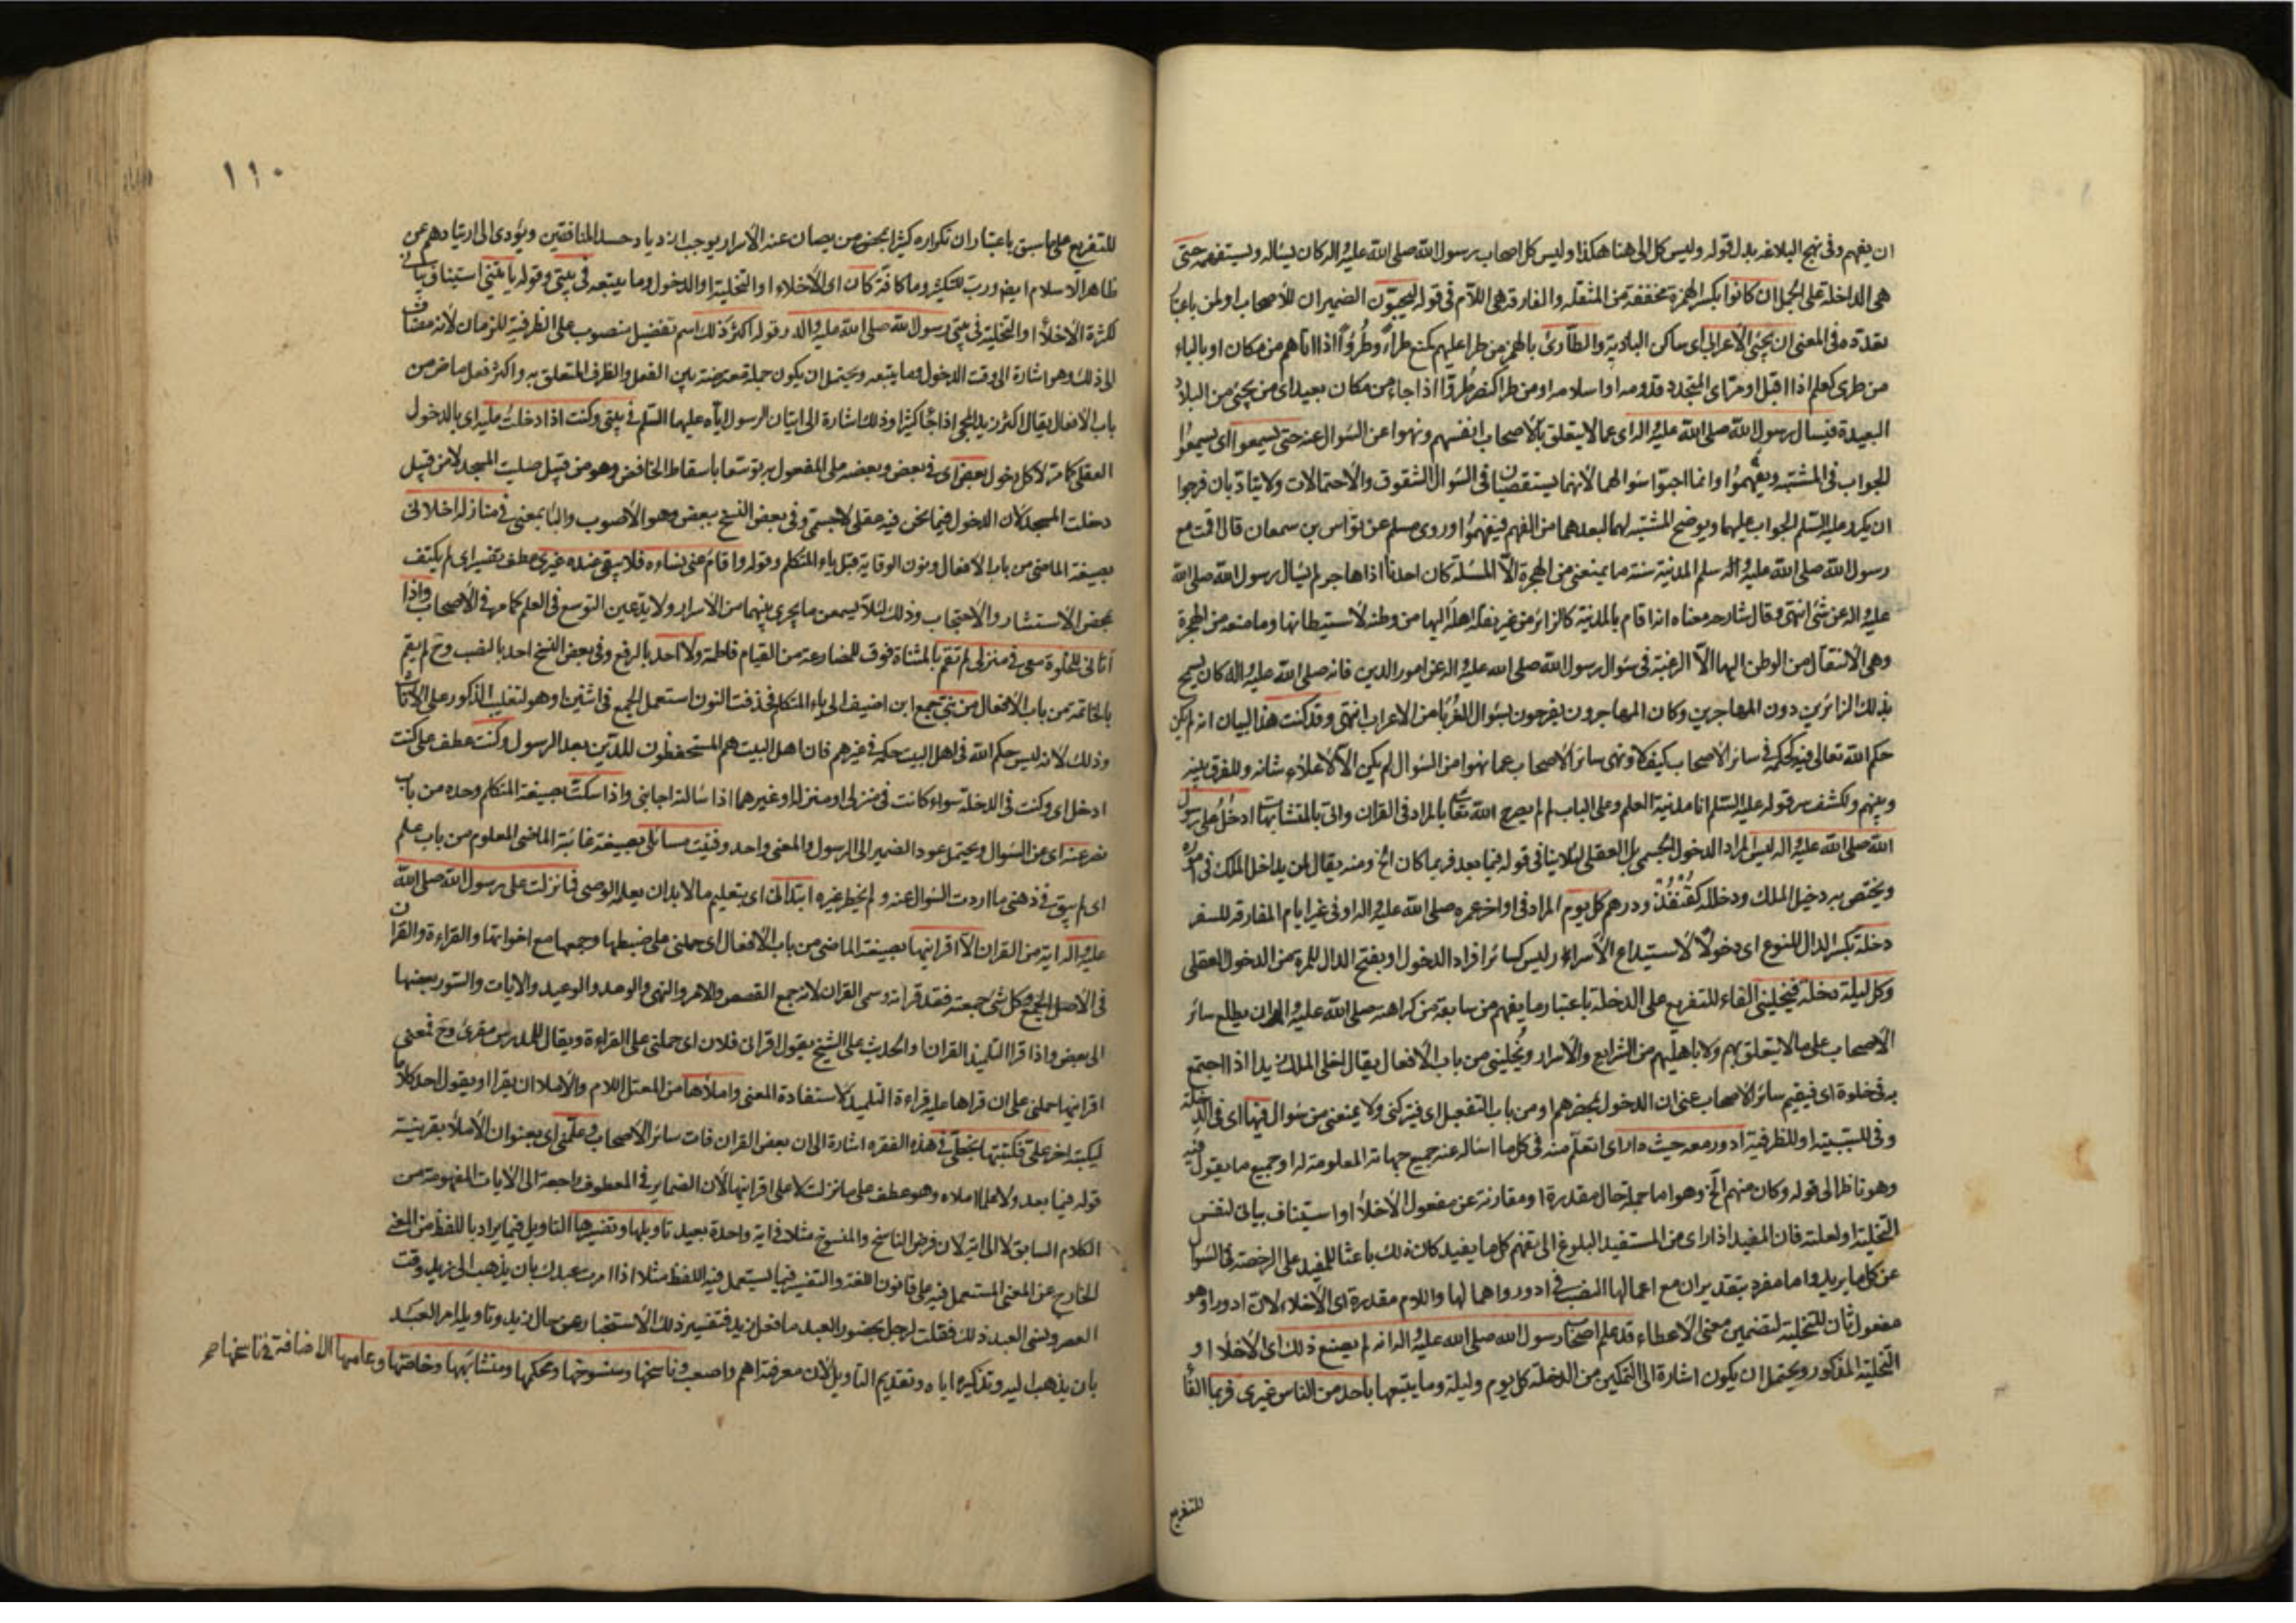 ان يفهم وفى نهج البلاغه بدل قوله وليس كل الى هنا هكذا وليس كل اصحاب رسول الله صلى الله عليه واله كان يساله ويستفهمه حتى
هى الداخلة على الجمل ان كانوا بكسر الهمزة مخففة من المثقله والفارقة هى اللام فى قوله ليحبون الضميران للاصحاب اولمن باعتبار
تعدده فى المعنى ان يجئ الاعرابى اى ساكن البادية والطارئ بالهمز من طرا عليهم كمنع طرأ وطروأ اذا اتاهم من مكان او بالياء
من طرى كعلم اذا اقبل او مر اى المتجدد قدومه او اسلامه او من طرا كنصر طروا اذا جاء من مكان بعيد اى من يجئ من البلاد
البعيدة فيسال رسول الله صلى الله عليه واله اى عما لا يتعلق بالاصحاب انفسهم ونهوا عن السؤال عنه حتى يسمعوا اى يسمعوا
الجواب فى المشتبه ويفهموا وانما احبوا سؤالهما لانهما يستقصيان فى السؤال الشقوق والاحتمالات ولا يتادبان فرجوا
ان يكرر عليه السلم الجواب عليهما ويوضح المشتبه لهما لبعدهما من الفهم فيفهموا وروى مسلم عن نواس بن سمعان قال اقمت مع
رسول الله صلى الله عليه واله سلم المدينة سنة ما يمنعنى من الهجرة الا المسئلة كان احدنا اذا هاجر لم يسال رسول الله صلى الله
عليه واله عن شئ انتهى وقال شارحه معناه انه اقام بالمدينة كالزائر من غير نقله اهله اليها من وطنه لاستيطانها وما منعه من الهجرة
وهى الانتقال من الوطن اليها الا الرغبة فى سؤال رسول الله صلى الله عليه واله عن امور الدين فانه صلى الله عليه واله كان يسمح
بذلك الزائرين دون المهاجرين وكان المهاجرون يفرحون بسؤال الغرباء من الاعراب انتهى وقد كنت هذا لبيان انه لم يكن
حكم الله تعالى فيه كحكمه فى سائر الاصحاب كيف لا ونهى سائر الاصحاب عما نهوا من السؤال لم يكن الا لاعلاء شانه وللفرق بينه
وبينهم ولكشف سر قوله عليه السلم انا مدينة العلم وعلى الباب لم لم يصرح الله تعالى بالمراد فى القران واتى بالمتشابهات ادخل على رسول
الله صلى الله عليه واله ليس المراد الدخول الجسمى بل العقلى لئلا ينافى قوله فيما بعد فربما كان الخ ومنه يقال لمن يداخل الملك فى امره
ويختص به دخيل الملك ودخلله كقنفذ ودرهم كل يوم المراد فى اواخر عمره صلى الله عليه واله او فى غير ايام المفارقة للسفر
دخلة بكسر الدال للنوع اى دخولا لاستيداع الاسرار وليس كسائر افراد الدخول او بفتح الدال للمرة من الدخول العقلى
وكل ليلة دخلة فيخلينى الفاء للتفريع على الدخلة باعتبار ما يفهم من سابعة من كراهته صلى الله عليه واله ان يطلع سائر
الاصحاب على ما لا يتعلق بهم ولا باهليهم من الشرايع والاسرار ويخلينى من باب الافعال يقال اخلى الملك زيدا اذا اجتمع
به فى خلوة اى فيقيم سائر الاصحاب عنى ان الدخول بمحضرهم او من باب التفعيل اى فيتركنى ولا يمنعنى من سؤال فيها اى فى الدخلة
وفى للسببية او للظرفية ادور معه حيث دار اى اتعلم منه فى كل ما اساله عنه جميع جهاته المعلومة له او جميع ما يقول فيه
وهو ناظر الى قوله وكان منهم الخ وهو اما جملة حال مقدرة او مقارنة عن مفعول الاخلاء او استيناف بيانى لنفس
التخلية او لعلته فان المفيد اذا راى من المستفيد البلوغ الى تفهم كل ما يفيد كان ذلك باعثا للمفيد على الرخصة فى السؤال
عن كل ما يريد واما مفرد بتقدير ان مع اعمالها النصب فى ادور واهمالها واللام مقدرة اى الاخلاء لان ادور او هو
مفعول ثان للتخلية لتضمين معنى الاعطاء قد علم اصحاب رسول الله صلى الله عليه واله انه لم يصنع ذلك اى الاخلاء او
التخلية المذكور ويحتمل ان يكون اشارة الى التمكين من الدخلة كل يوم وليلة وما يتبعها باحد من الناس غيرى فربما الفاء
للتفريع
١١٠
للتفريع على ما سبق باعتبار ان تكراره كثيرا بمحضر من يصان عنه الاسرار يوجب ازدياد حسد المنافقين ويؤدى الى ارتدادهم عن
ظاهر الاسلام ايضا ورب للتكثير وما كافة كان اى الاخلاء او التخلية او الدخول وما يتبعه فى بيتى وقوله ياتينى استيناف بيانى
لكثرة الاخلاء او التخلية فى بيتى رسول الله صلى الله عليه واله وقوله اكثر ذلك اسم تفضيل منصوب على الظرفية للزمان لانه مضاف
الى ذلك وهو اشارة الى وقت الدخول وما يتبعه ويحتمل ان يكون جملة معترضة بين الفعل والظرف المتعلق به واكثر فعل ماض من
باب الافعال يقال اكثر زيد المجئ اذا جاء كثيرا وذلك اشارة الى اتيان الرسول اياه عليهما السلم فى بيتى وكنت اذا دخلت عليه اى بالدخول
العقلى كما مر لا كل دخول بعض اى فى بعض وبعضه على المفعول به توسعا باسقاط الخافض وهو من قبيل صليت المسجد لا من قبيل
دخلت المسجد لان الدخول فيما نحن فيه عقلى لا جسمى وفى بعض النسخ ببعض وهو الاصوب والباء بمعنى فى منازله اخلانى
بصيغة الماضى من باب الافعال ونون الوقاية قبل ياء المتكلم وقوله واقام عنى نساءه فلا يبقى عنده غيرى عطف تفسير اى لم يكتف
بمحض الاستشار والاحتجاب وذلك لئلا يسمعن ما يجرى بينهما من الاسرار ولا يدعين التوسع فى العلم كما مر فى الاصحاب واذا
اتانى للخلوة معى فى منزلى لم تقم بالمثناة فوق للمضارعة من القيام فاطمة ولا احد بالرفع وفى بعض النسخ احدا بالنصب وح لم يقم
بالخاتمة من باب الافعال من بنى جمع ابن اضيف الى ياء المتكلم فحذفت النون استعمل الجمع فى اثنين او هو لتغليب الذكور على الاناث
وذلك لانه ليس حكم الله فى اهل البيت حكمه فى غيرهم فان اهل البيت هم المستحفظون للدين بعد الرسول وكنت عطف على كنت
ادخل اى وكنت فى الدخلة سواء كانت فى منزلى او منزله او غيرهما اذا سالته اجابنى واذا سكت بصيغة المتكلم وحده من باب
نصر عنه اى عن السؤال ويحتمل عود الضمير الى الرسول والمعنى واحد وفنيت مسائلى بصيغة غائبة الماضى المعلوم من باب علم
اى لم يبق فى ذهنى ما اردت السؤال عنه ولم يخطر غيره ابتدانى اى بتعليم ما لا بد ان يعلمه الوصى فما نزلت على رسول الله صلى الله
عليه واله اية من القران الا اقرانيها بصيغة الماضى من باب الافعال اى حملنى على ضبطها وجمعها مع اخواتها والقراءة والقران
فى الاصل الجمع وكل شئ جمعته فقد قراته وسمى القران لانه جمع القصص والامر والنهى والوعد والوعيد والايات والسور بعضها
الى بعض واذا قرا التلميذ القران او الحديث على الشيخ يقول اقرانى فلان اى حملنى على القراءة ويقال للمدرس مقرئ وح فمعنى
اقرانيها حملنى على ان قراها عليه قراءة التلميذ لاستفادة المعنى واملاها من المعتل اللام والاملاء ان يقرا او يقول احد كلاما
ليكتبه اخر على فكتبتها بخطى فى هذه الفقره اشارة الى ان بعض القران فات سائر الاصحاب وعلمنى اى بعنوان الاملاء بقرينة
قوله فيما بعد ولا علما املاه وهو عطف على ما نزلت لا على اقرانيها لان الضماير فى المعطوف راجعة الى الايات المفهومة من
الكلام السابق لا الى اية لان فرض الناسخ والمنسوخ مثلا فى اية واحدة بعيد تاويلها وتفسيرها التاويل فيما يراد باللفظ من المعنى
الخارج عن المعنى المستعمل فيه على قانون اللغة والتفسير فيما يستعمل فيه اللفظ مثلا اذا امرت عبدك بان يذهب الى زيد وقت
العصر ونسى العبد ذلك فقلت لرجل بحضور العبد ما فعل زيد فتفسير ذلك الاستخبار عن حال زيد وتاويله امر العبد
بان يذهب اليه وتذكيره اياه وتقديم التاويل لان معرفته اهم واصعب وناسخها ومنسوخها ومحكمها ومتشابهها وخاصها وعامها الاضافة فى ناسخها